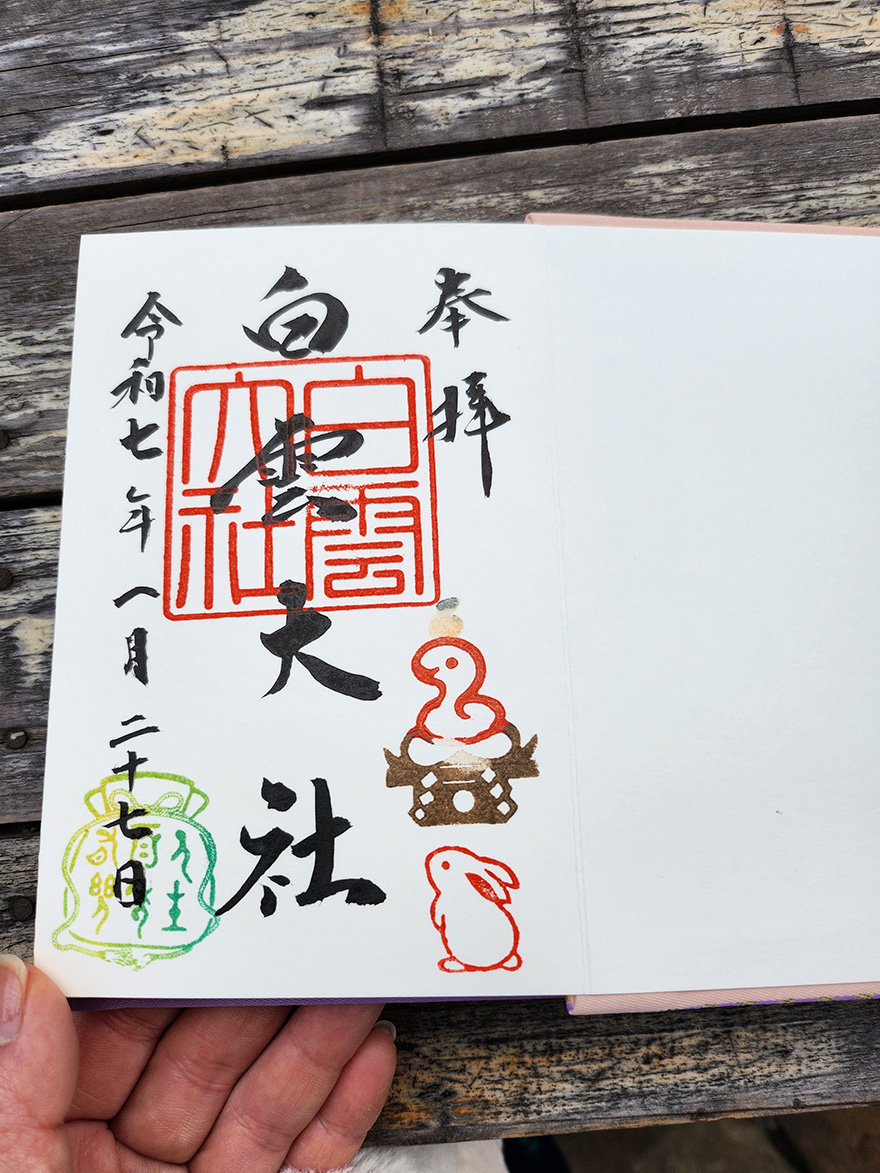 奉拝
白雲大社
白雲
大社
令和七年一月二十七日
人生